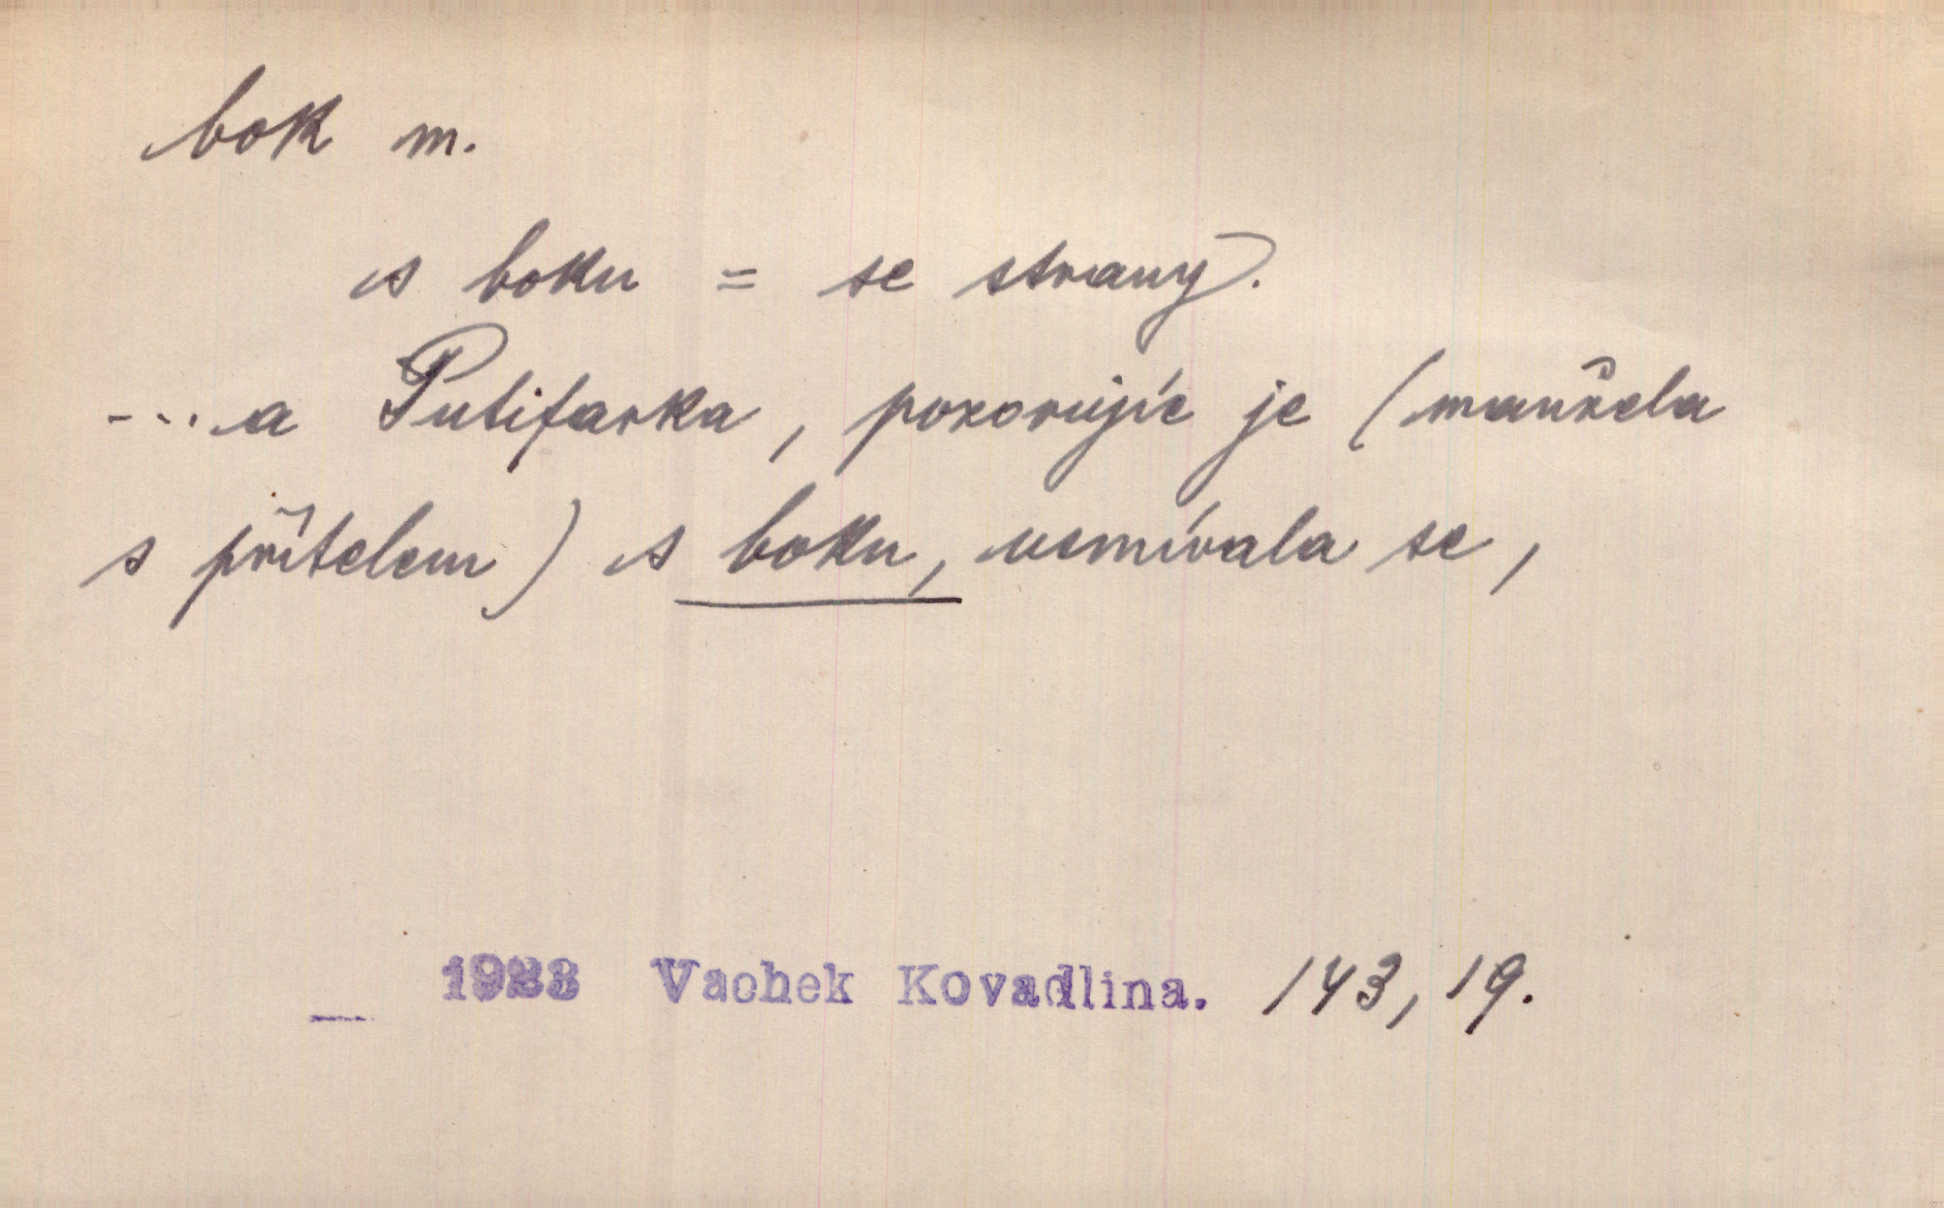 bok m.
s boku = se strany.
-... a Putifarka, pozorujíc je (manžela
s přítelem) s boku, usmívala se,
1933 Vachek Kovadlina. 143, 19.